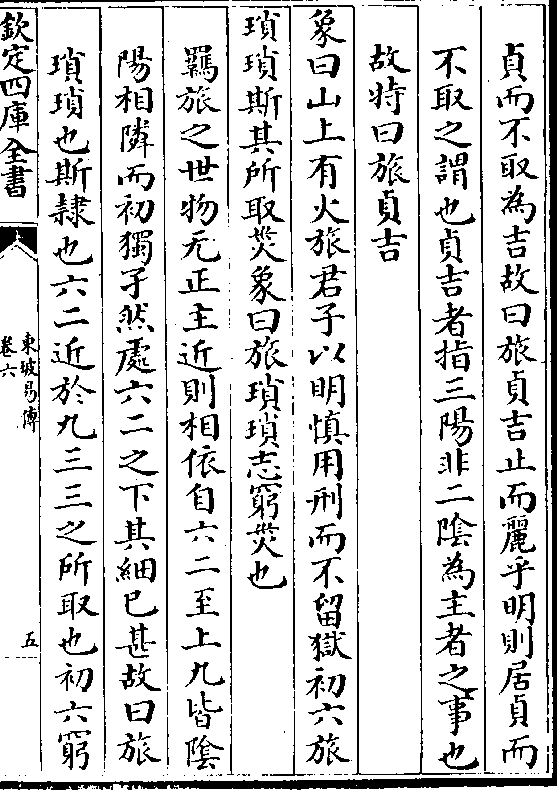 貞而不取為吉故曰旅貞吉止而麗乎明則居貞而
不取之謂也貞吉者指三陽非二陰為主者之事也
故時曰旅貞吉
象曰山上有火旅君子以明慎用刑而不留獄初六旅
瑣瑣斯其所取災象曰旅瑣瑣志窮災也
羈旅之世物无正主近則相依自六二至上九皆陰
陽相隣而初獨孑然處六二之下其細已甚故曰旅
瑣瑣也斯隷也六二近於九三三之所取也初六窮
欽定四庫全書
東坡易傳
卷六
五